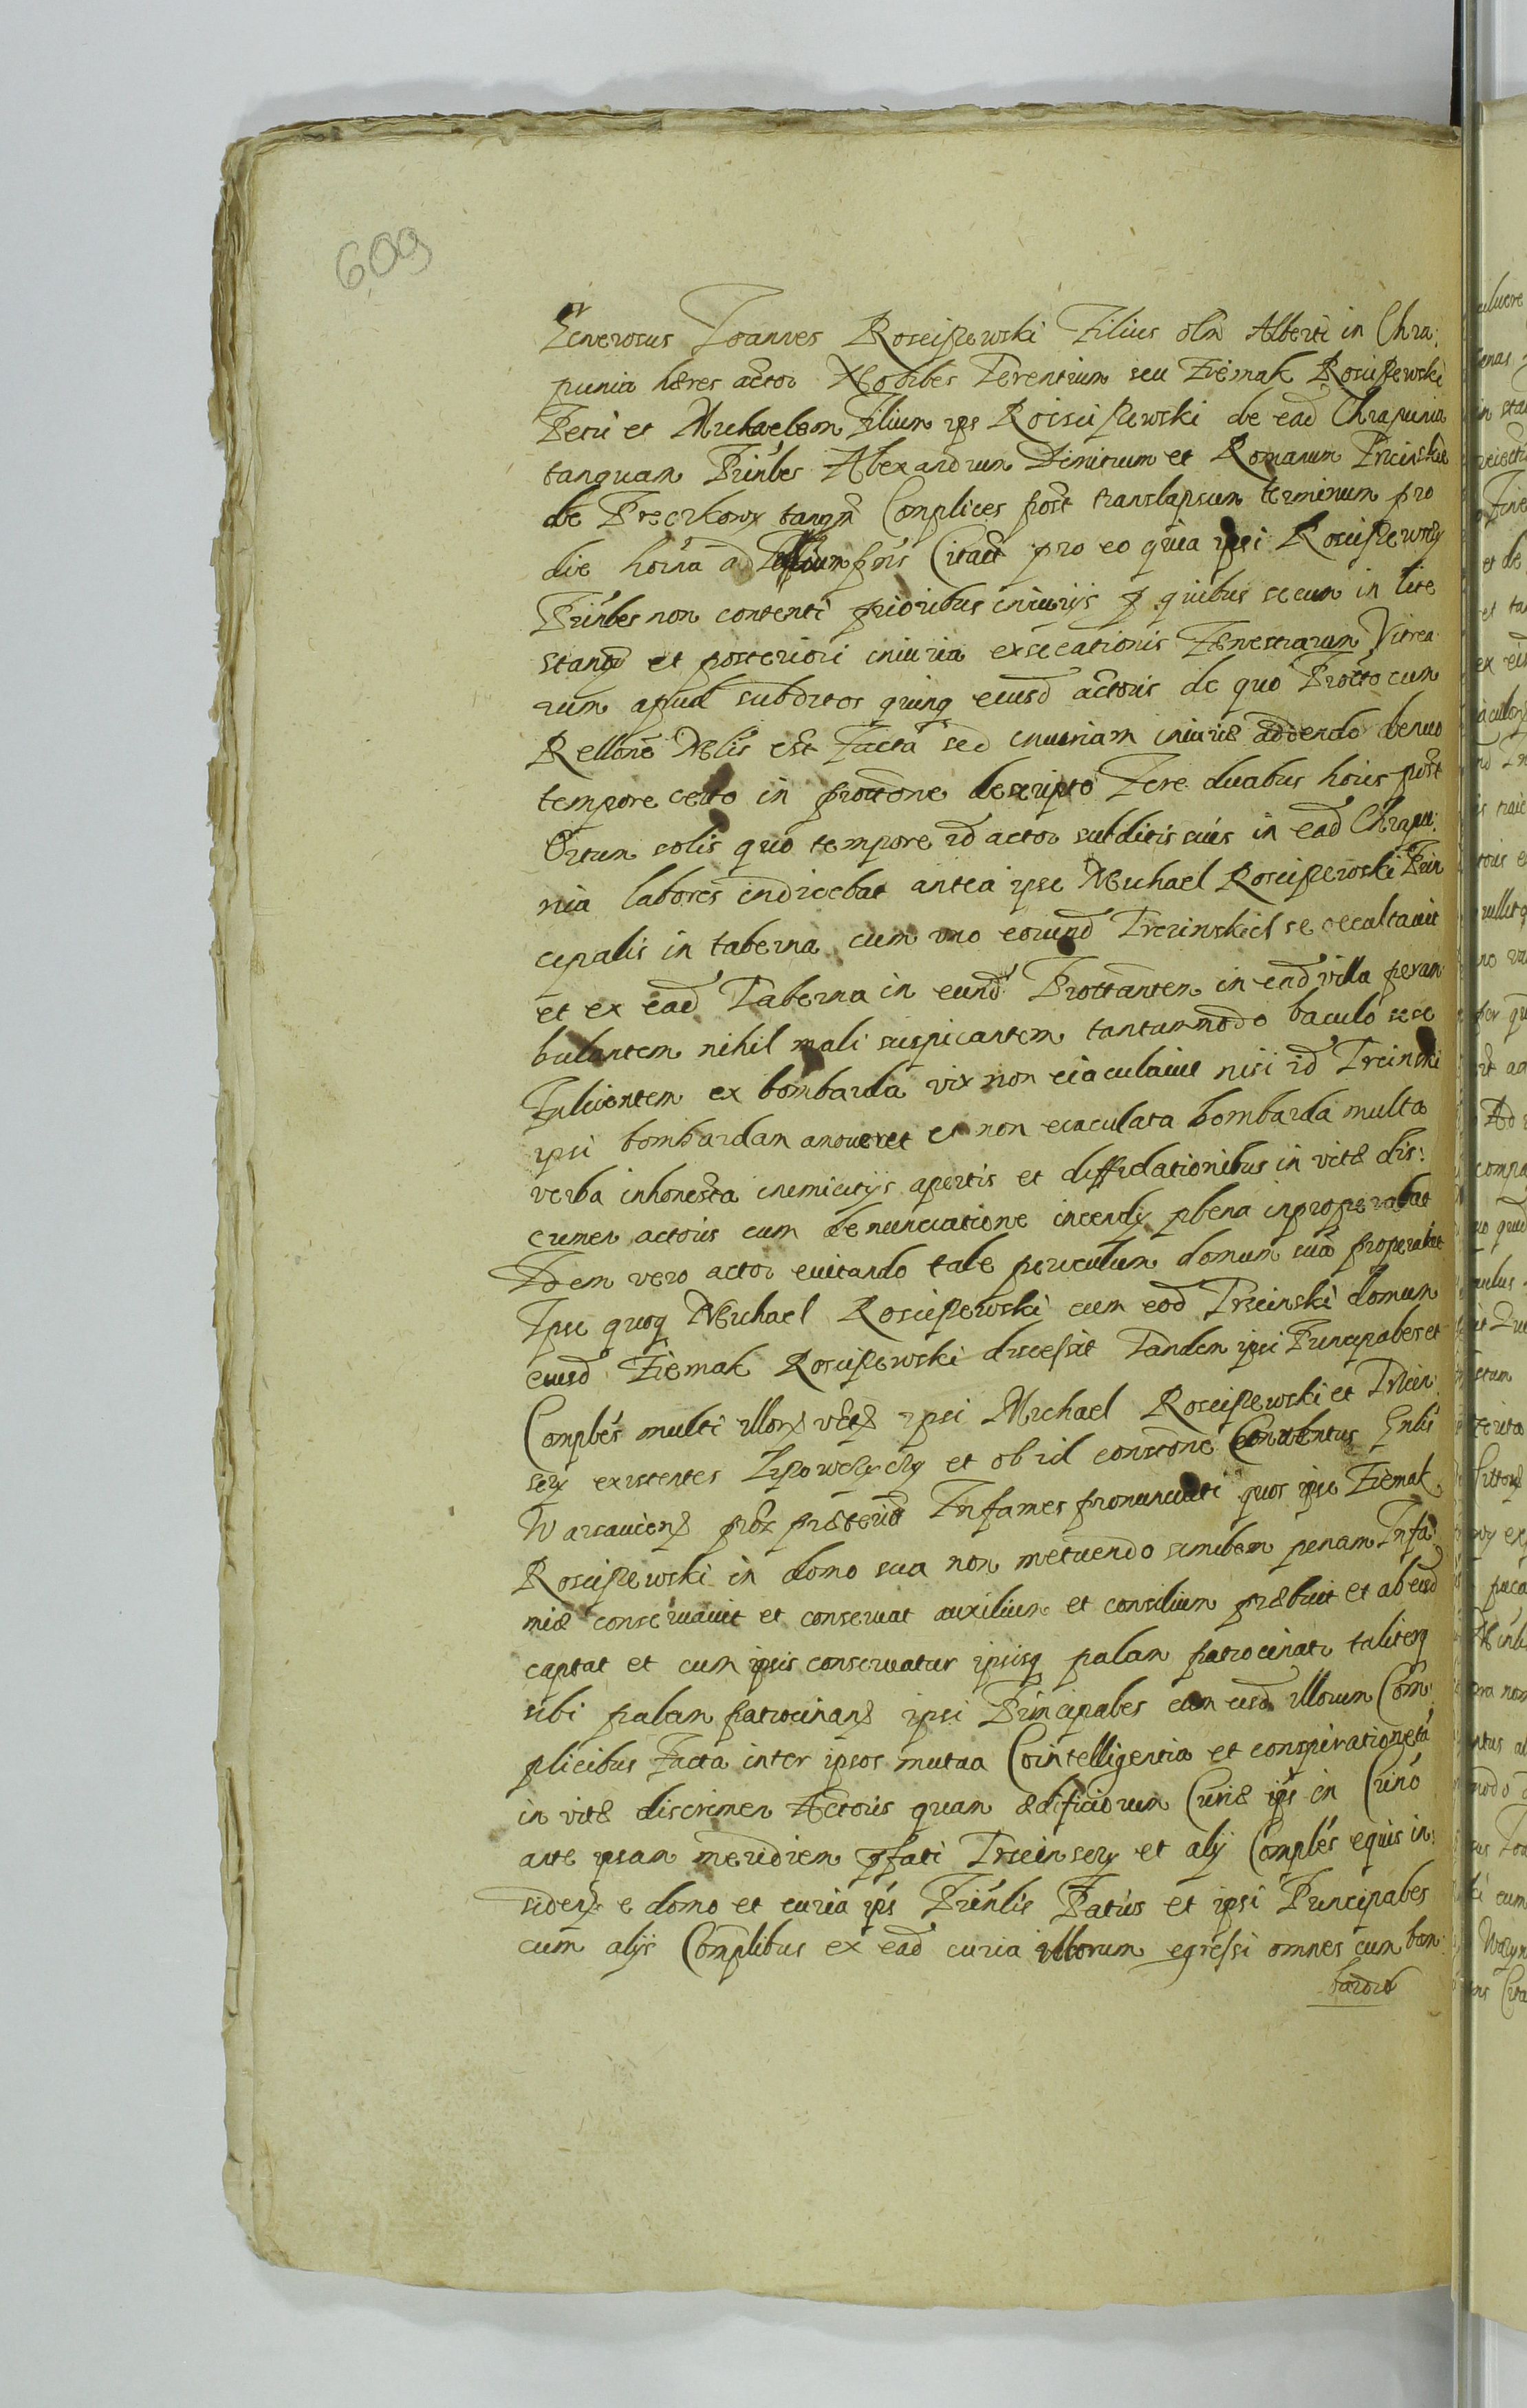 609
Generosus Joannes Rosciszewski Filius olim Alberti in Chra:
punia hæres actor Nobiles Terentium seu Ziemak Rosciszewski
Petri et Michaelem Filium ips Roisciszewski de ead Chrapunia
tanquam Prinles Alexandrum Dimitrum et Romanum Trcinskie
de tanqm Complices post translapsum terminum pro
die horna ad pñs Citavit pro eo quia ipsi Rosciszewscy
Prinles non contenti prioribus iniurijs p quibus secum in lite
stant et posteriori iniuria exsecationis Fenestrarum Vitrea
rum apud subditos quinq eiusd actoris de quo Protto cum
Rellone Melis est Facta sed iniuriam iniuriæ addendo denuo
tempore certo in prottone descripto Fere duabus horis post
Ortum solis quo tempore id actor subditis suis in ead Chrapu:
nia labores indicebat antea ipse Michael Rosciszewski Prin
cipalis in taberna cum uno eorund Trcinskich se occultauit
et ex ead Taberna in eund Prottantem in ead villa peram
bulantem nihil mali suspicantem tantummodo baculo sese
Fulcientem ex bombarda vix non eiaculauit nisi id Trcinski
ipsi bombardam amoueret et non eiaculata bombarda multa
verba inhonesta inimicitijs apertis et diffidationibus in vitæ dis:
crimen actoris cum denunciatione incendy plena improperabat
Idem vero actor euitando tale periculum domum sua properabat
Ipse quoq Michael Rosciszewski cum eod Trscinski domum
eiusd Ziemak Rosciszewski discessit Tandem ipsi Principales et
Comples multi illorx ipsi Michael Rosciszewski et Trscin
scy existentes et ob id constone Conuentus Gnlis
Warsauiens prox præterid Infames pronunciati quos ipse Ziemak
Rosciszewski in domo sua non metuendo similem penam Infa
miæ conseruauit et conseruat auxilium et consilium præbuit et ab eisd
captat et cum ipsis conseruatur ipsisq palam patrocinatr taliterq
sibi palam patrocinans ipsi Principales cum eisd illorum Com
plicibus Facta inter ipsos mutua Cointelligentia et conspiratione tã
in vitæ discrimen Actoris quam ædificiorum Curiæ ips in Crino
ante ipsam meridiem pfati Trscinscy et alij Comples equis in:
siden e domo et curia ips Prinlis Patris et ipsi Principales
cum alijs Complibus ex ead curia illorum egressi omnes cum bom:
bardis